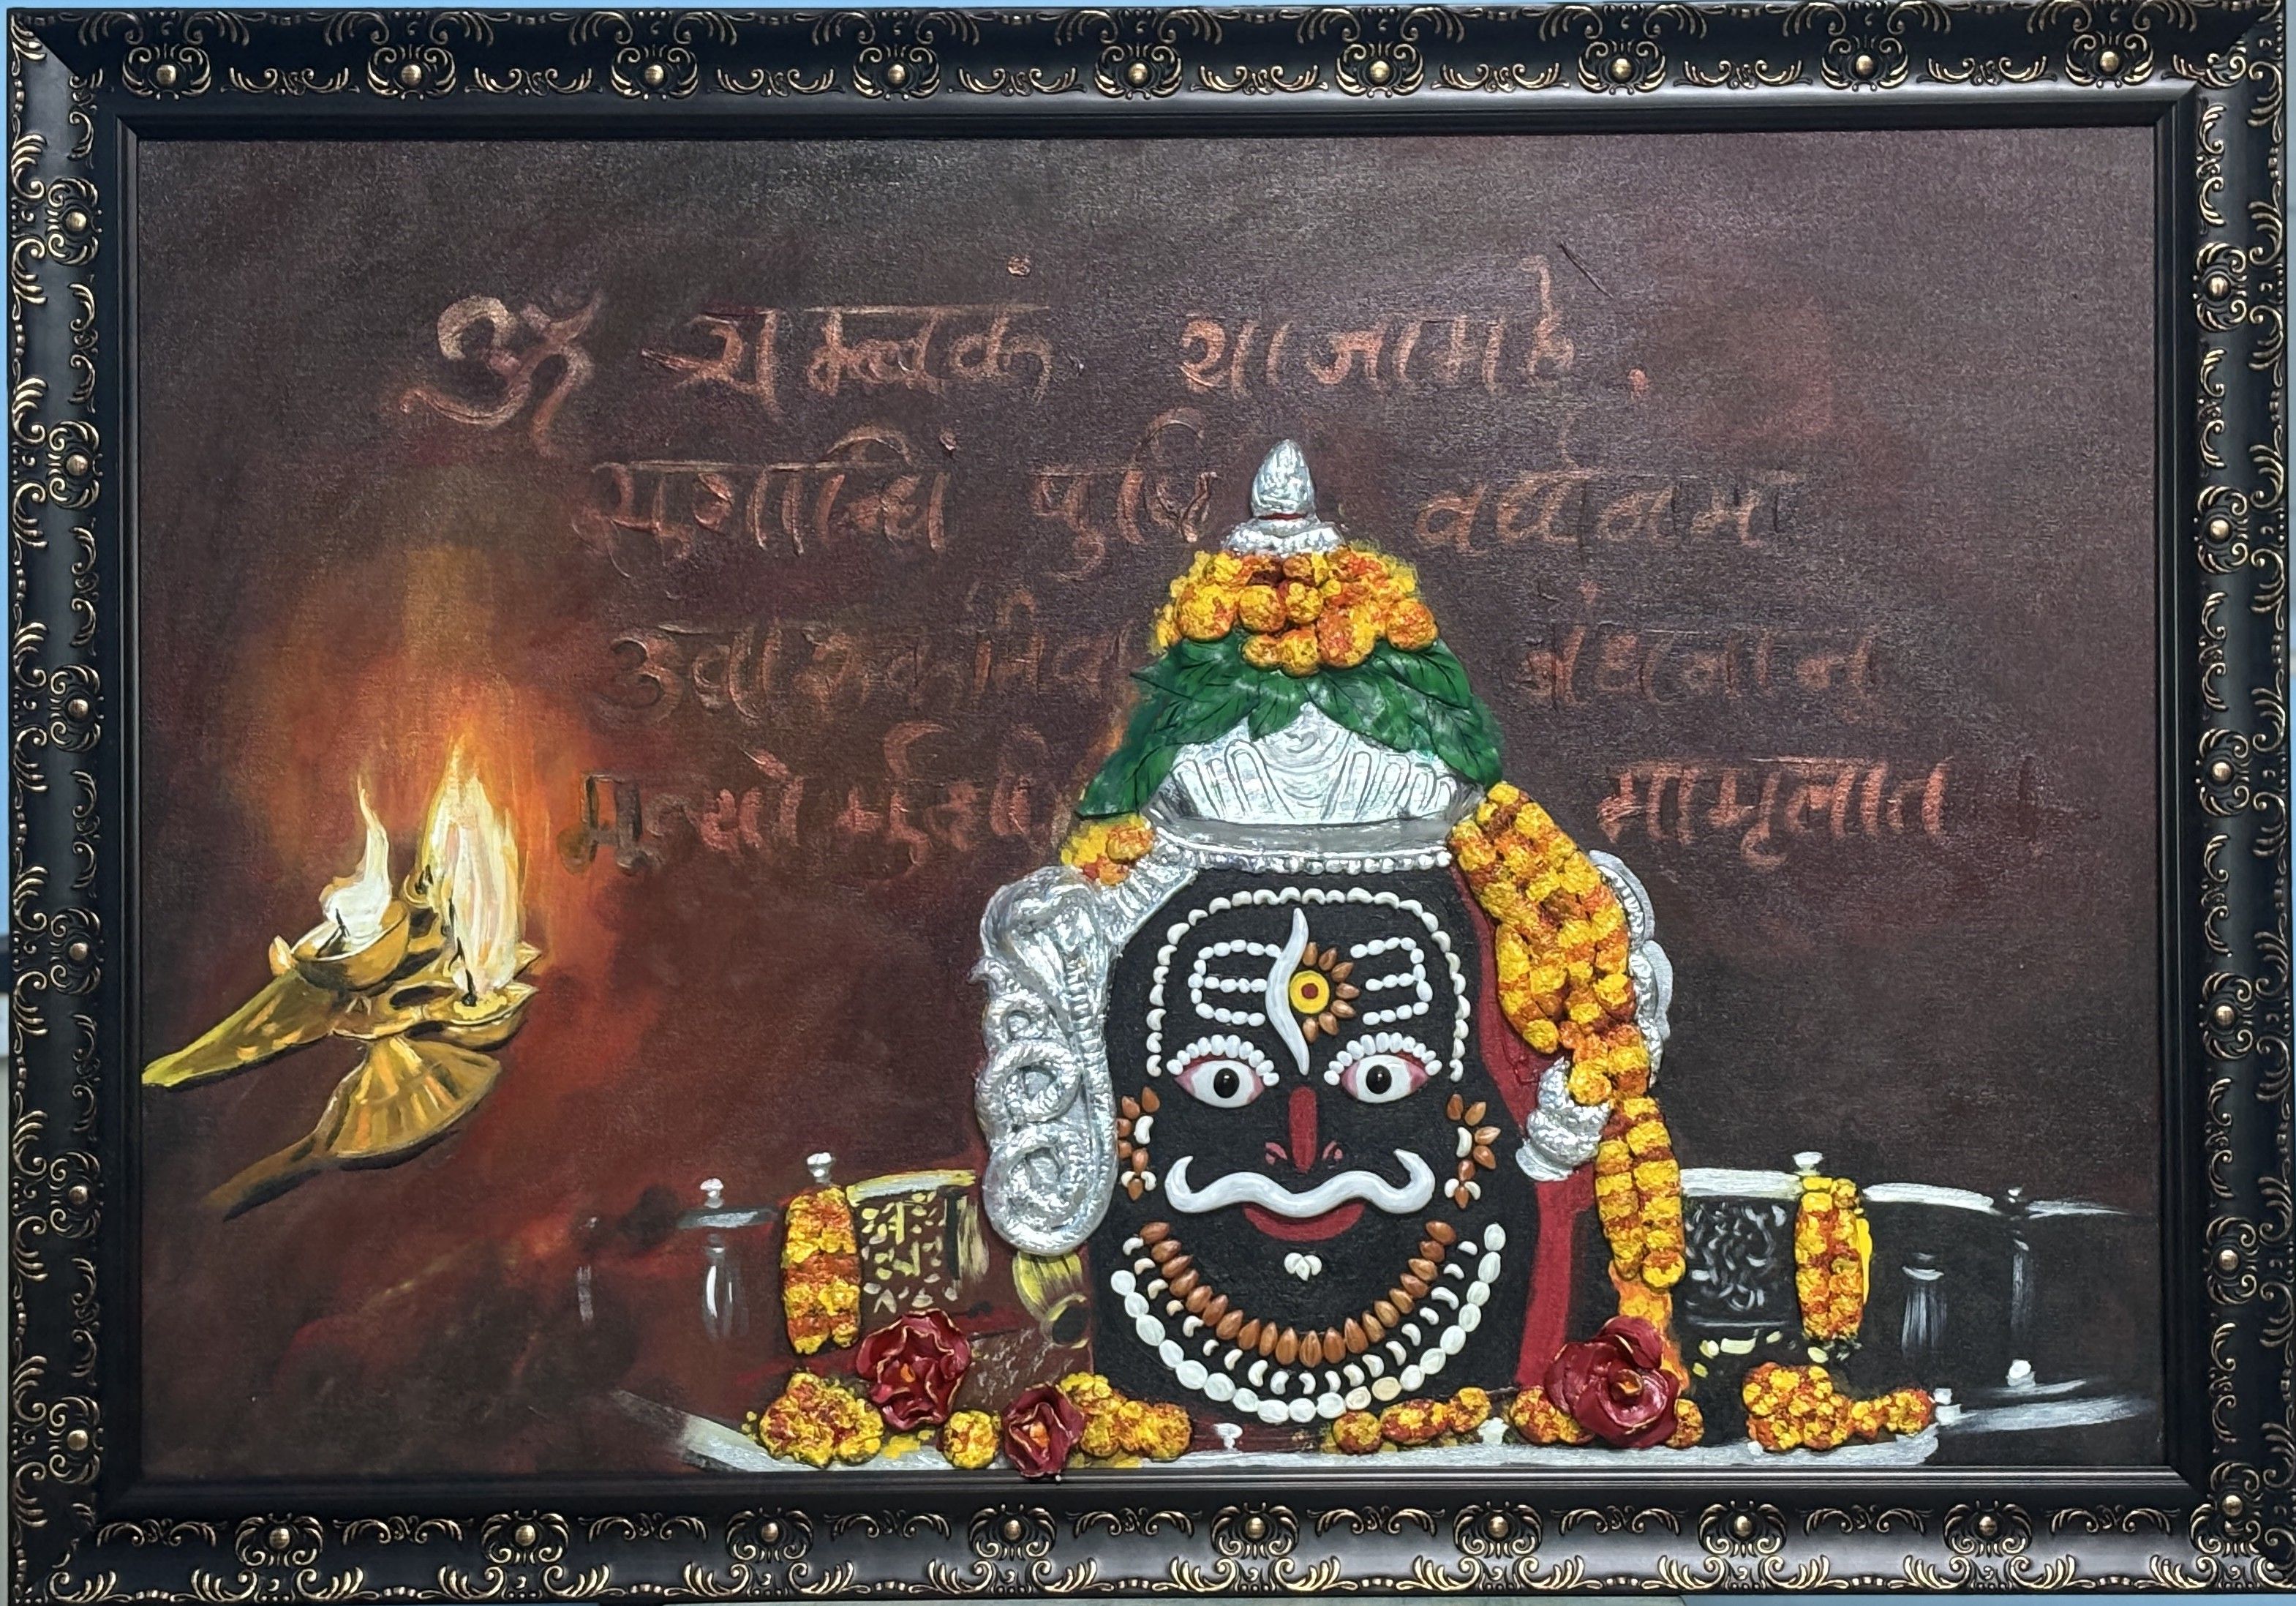 ॐ त्र्यम्बकं याजामहे
सुगान्धिं पुष्टि वर्धनम
उर्वारुकमिव बंधनान
मृत्योर्मुक्षीय मामृतात